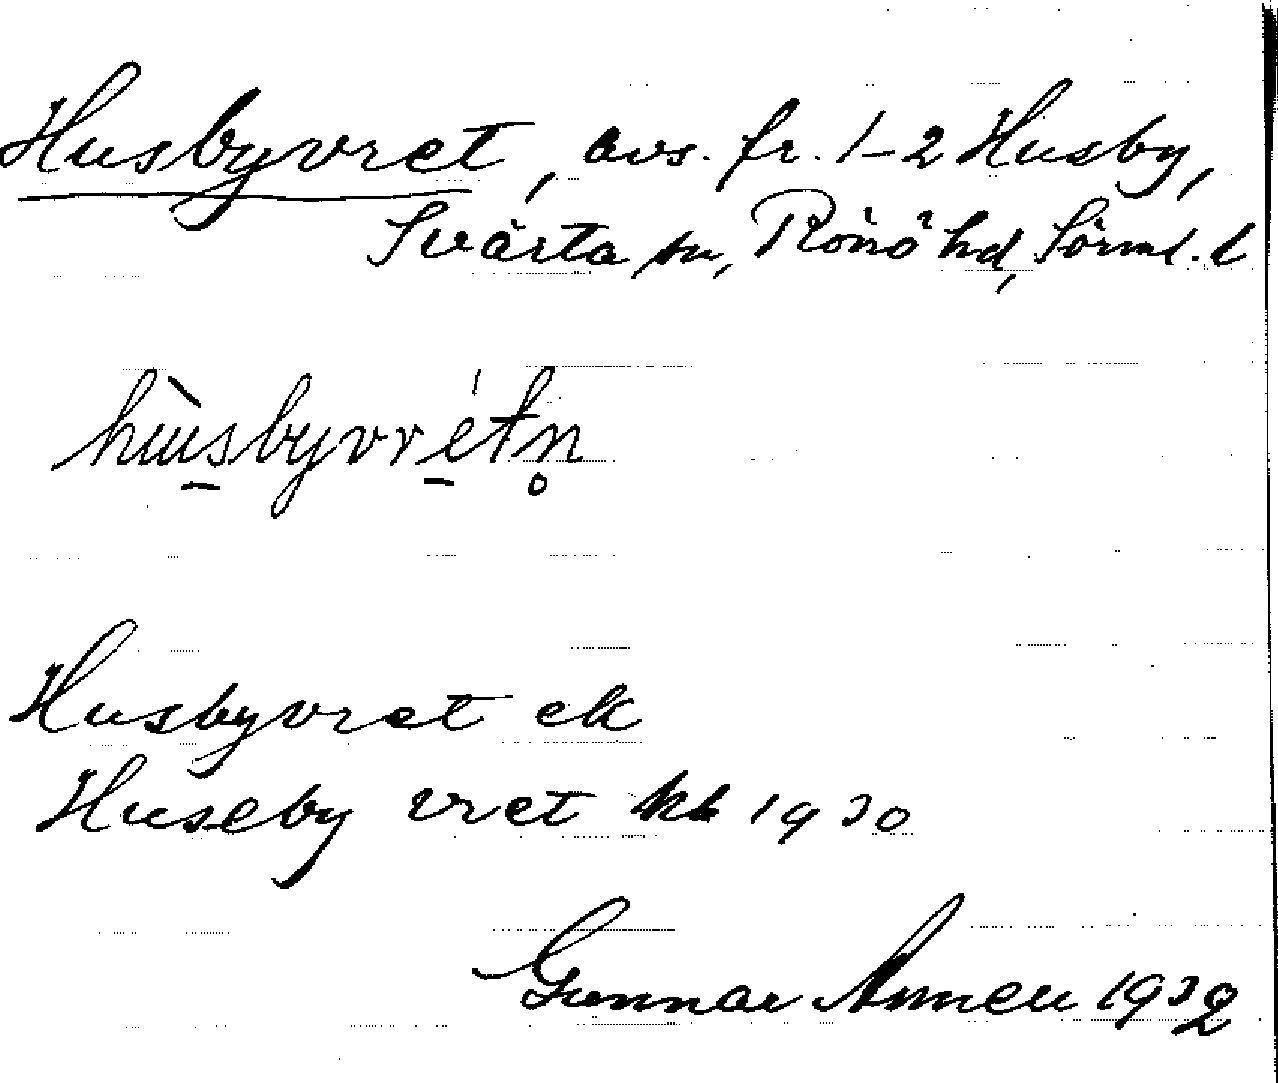 Husbyvret, avs. fr. 1-2 Husby,
Svärta sn, Rönö hd, Sörml. l
Husbyvret ek
Huseby vret kb 1930
Gunnar 1932